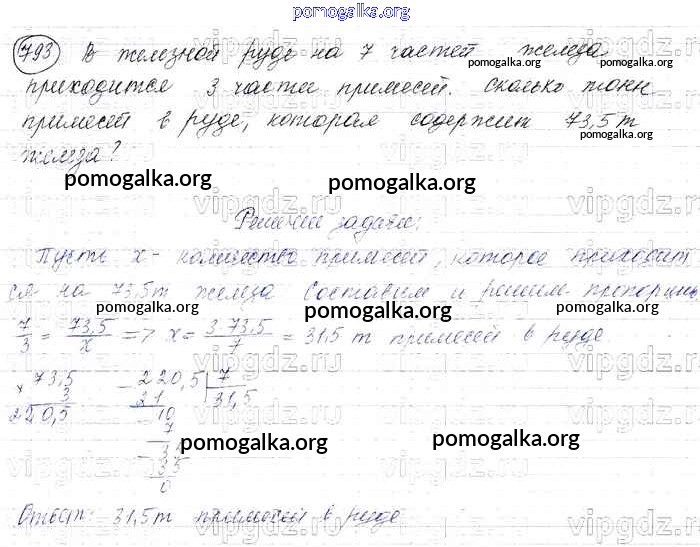 pomogalka.org
793) В железной руде на 7 частей железа
pomogalka.org pomogalka.org
приходится 3 части примесей. Сколько тонн
примесей в руде, которая содержит 73,5 т
pomogalka.org
железа?
pomogalka.org pomogalka.org
vipgdz.ru vipgdz.ru vipgdz.ru
Решении задачи:
Пусть x - количество примесей, которое приходит
ся на 73,5т железа Составим и решим пропорцию
pomogalka.org pomogalka.org
7/3 = 73,5/x => x = 3·73,5/7 = 31,5 т примесей в руде.
× 73,5 - 220,5 | 7
3 21 31,5
220,5 - 10
7
pomogalka.org pomogalka.org
- 35
35
0
pomogalka.org
Ответ: 31,5т примесей в руде